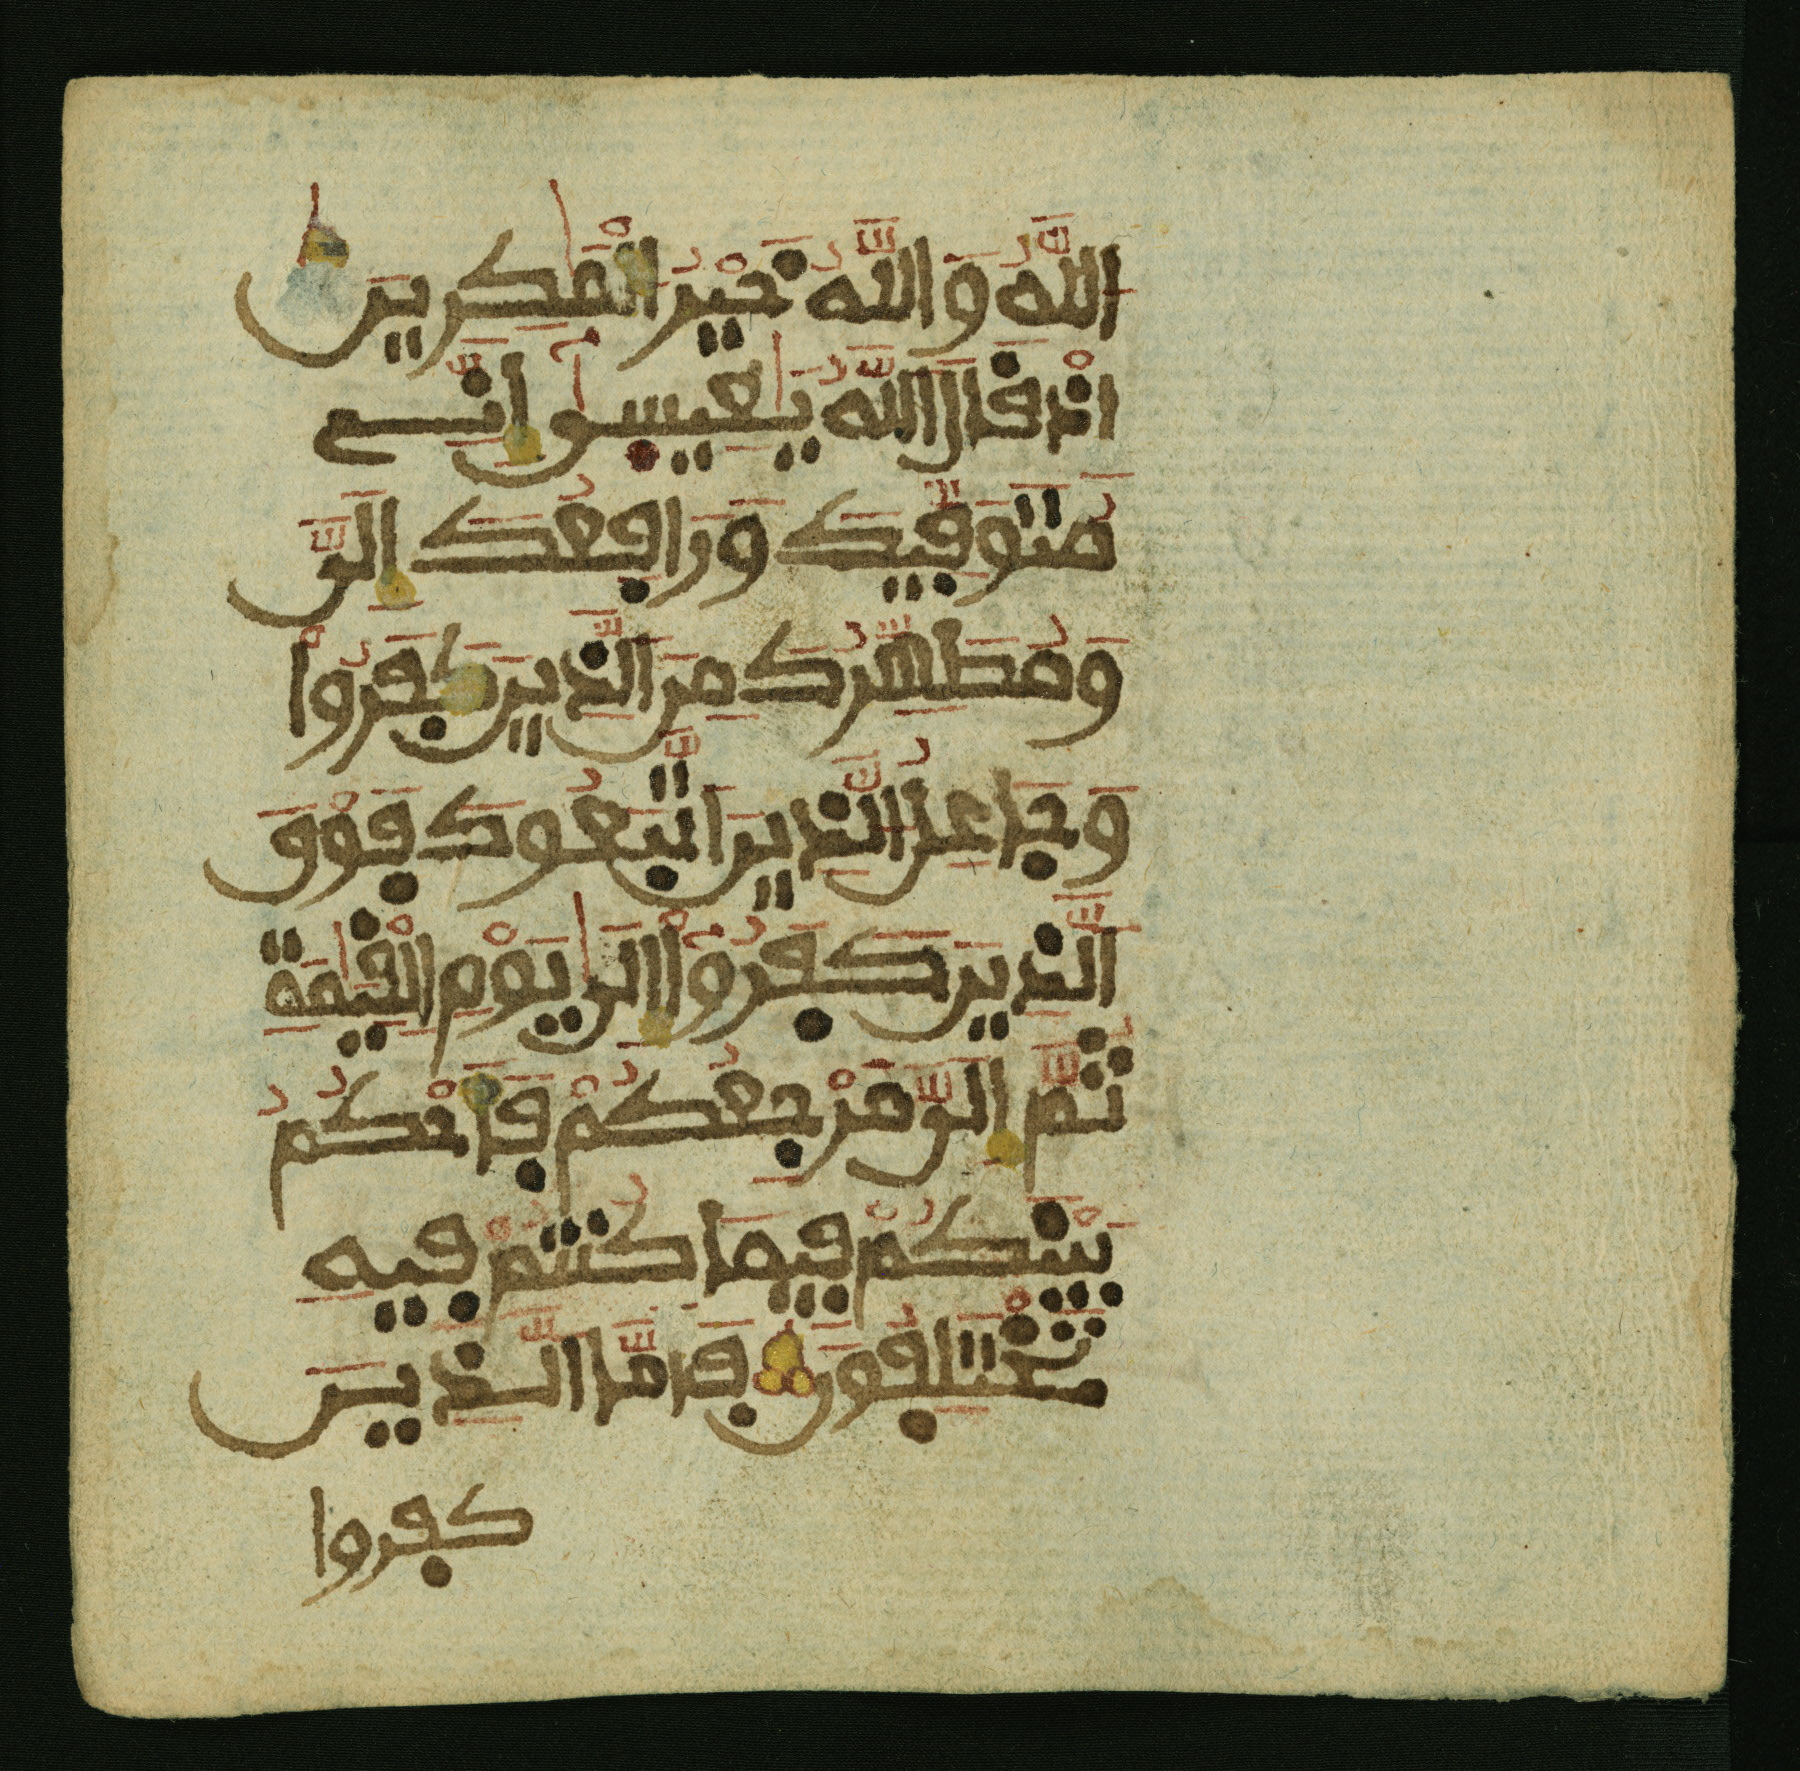 اللَّهُ وَاللَّهُ خَيْرُ الْمَٰكِرِينَ
إِذْ قَالَ اللَّهُ يَٰعِيسَىٰٓ إِنِّے
مُتَوَفِّيكَ وَرَافِعُكَ إِلَىَّ
وَمُطَهِّرُكَ مِنَ الَّذِينَ كَفَرُواْ
وَجَاعِلُ الَّذِينَ اتَّبَعُوكَ فَوْقَ
الَّذِينَ كَفَرُوٓاْ إِلَىٰ يَوْمِ الْقِيَٰمَةِ
ثُمَّ إِلَىَّ مَرْجِعُكُمْ فَأَحْكُمُ
بَيْنَكُمْ فِيمَا كُنتُمْ فِيهِ
تَخْتَلِفُونَ فَأَمَّا الَّذِينَ
كفروا